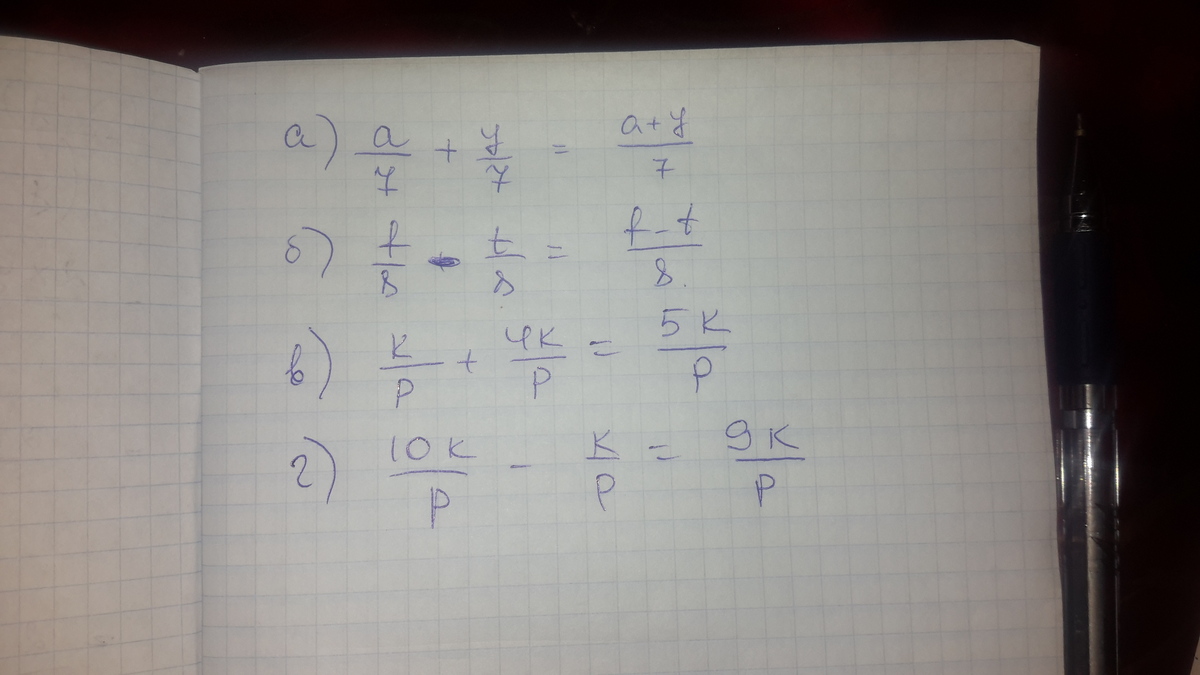 а) a/7 + y/7 = a+y/7
б) f/8 - t/8 = f-t/8
в) k/p + 4k/p = 5k/p
г) 10k/p - k/p = 9k/p